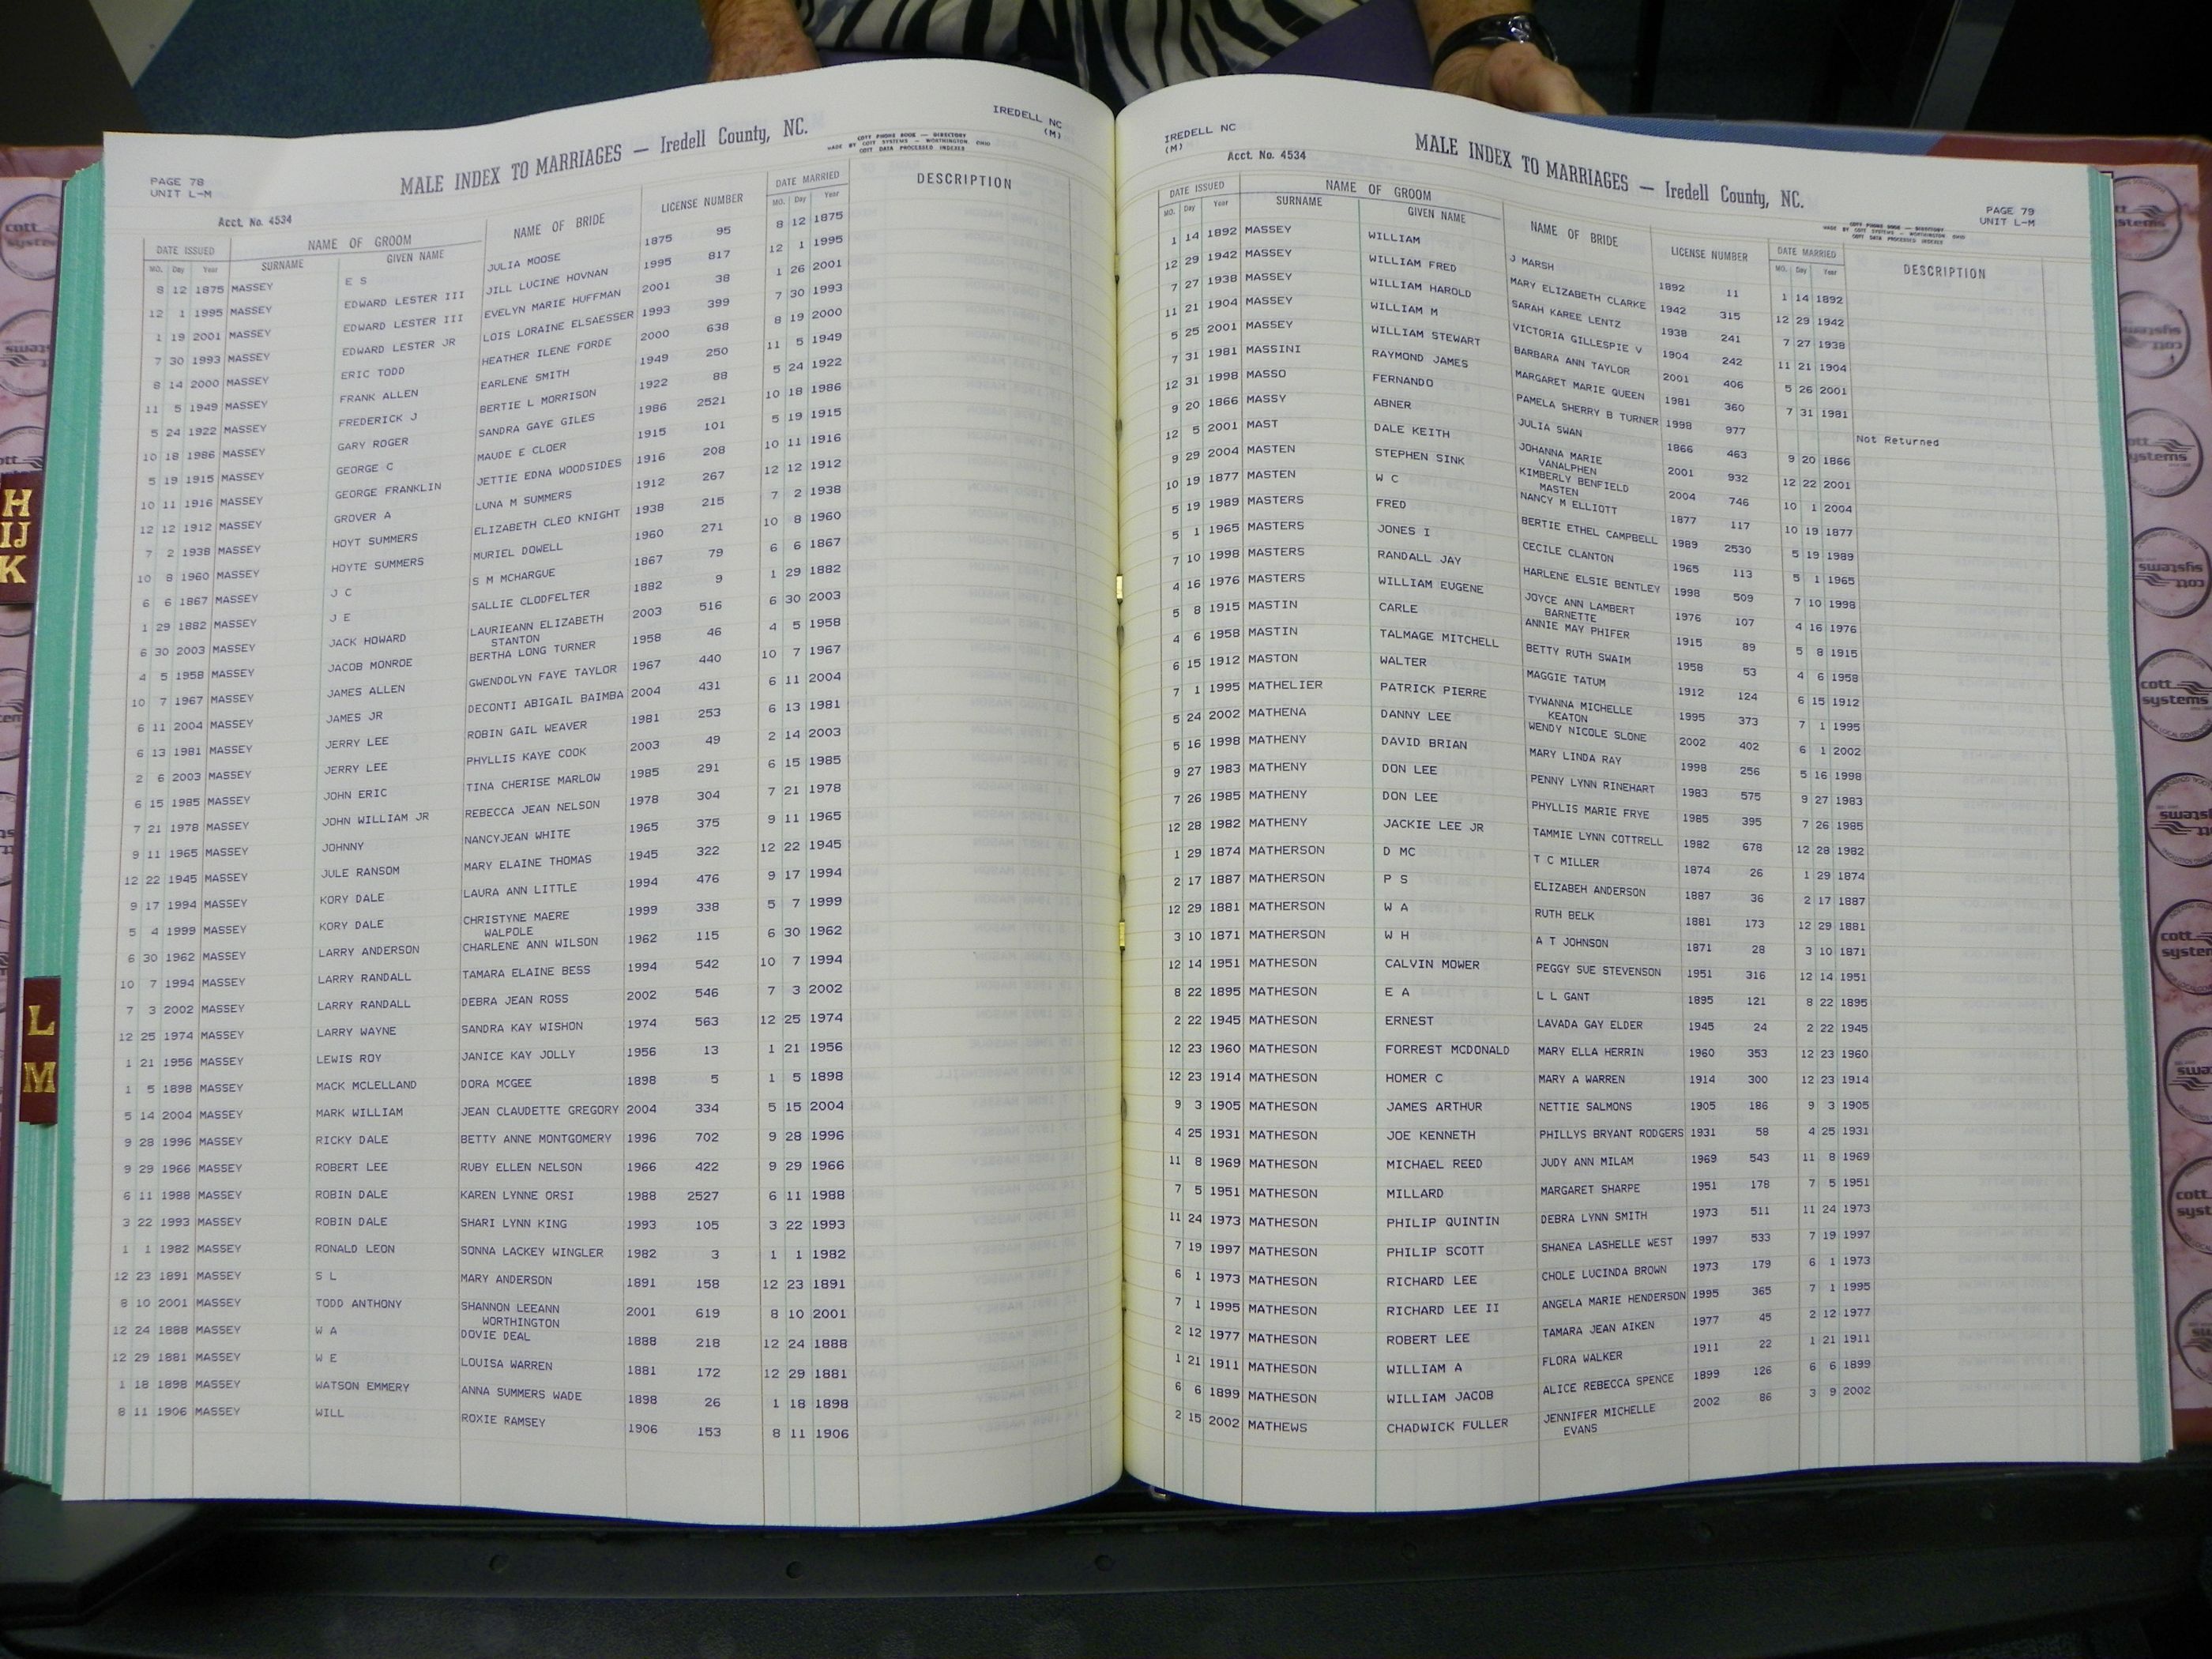 IREDELL NC
(M)
PAGE 78
UNIT L-M
MALE INDEX TO MARRIAGES — Iredell County, NC.
COTT PHONE BOOK — DIRECTORY
MADE BY COTT SYSTEMS — WORTHINGTON, OHIO
COTT DATA PROCESSED INDEXER
Acct. No. 4534
DATE ISSUED NAME OF GROOM NAME OF BRIDE LICENSE NUMBER DATE MARRIED DESCRIPTION
MO. Day Year SURNAME GIVEN NAME MO. Day Year
8 12 1875 MASSEY E S JULIA MOOSE 1875 95 8 12 1875
12 1 1995 MASSEY EDWARD LESTER III JILL LUCINE HOVNAN 1995 817 12 1 1995
1 19 2001 MASSEY EDWARD LESTER III EVELYN MARIE HUFFMAN 2001 38 1 26 2001
7 30 1993 MASSEY EDWARD LESTER JR LOIS LORAINE ELSAESSER 1993 399 7 30 1993
8 14 2000 MASSEY ERIC TODD HEATHER ILENE FORDE 2000 638 8 19 2000
11 5 1949 MASSEY FRANK ALLEN EARLENE SMITH 1949 250 11 5 1949
5 24 1922 MASSEY FREDERICK J BERTIE L MORRISON 1922 88 5 24 1922
10 18 1986 MASSEY GARY ROGER SANDRA GAYE GILES 1986 2521 10 18 1986
5 19 1915 MASSEY GEORGE C MAUDE E CLOER 1915 101 5 19 1915
10 11 1916 MASSEY GEORGE FRANKLIN JETTIE EDNA WOODSIDES 1916 208 10 11 1916
12 12 1912 MASSEY GROVER A LUNA M SUMMERS 1912 267 12 12 1912
7 2 1938 MASSEY HOYT SUMMERS ELIZABETH CLEO KNIGHT 1938 215 7 2 1938
10 8 1960 MASSEY HOYTE SUMMERS MURIEL DOWELL 1960 271 10 8 1960
6 6 1867 MASSEY J C S M MCHARGUE 1867 79 6 6 1867
1 29 1882 MASSEY J E SALLIE CLODFELTER 1882 9 1 29 1882
6 30 2003 MASSEY JACK HOWARD LAURIEANN ELIZABETH 2003 516 6 30 2003
STANTON
4 5 1958 MASSEY JACOB MONROE BERTHA LONG TURNER 1958 46 4 5 1958
10 7 1967 MASSEY JAMES ALLEN GWENDOLYN FAYE TAYLOR 1967 440 10 7 1967
6 11 2004 MASSEY JAMES JR DECONTI ABIGAIL BAIMBA 2004 431 6 11 2004
6 13 1981 MASSEY JERRY LEE ROBIN GAIL WEAVER 1981 253 6 13 1981
2 6 2003 MASSEY JERRY LEE PHYLLIS KAYE COOK 2003 49 2 14 2003
6 15 1985 MASSEY JOHN ERIC TINA CHERISE MARLOW 1985 291 6 15 1985
7 21 1978 MASSEY JOHN WILLIAM JR REBECCA JEAN NELSON 1978 304 7 21 1978
9 11 1965 MASSEY JOHNNY NANCYJEAN WHITE 1965 375 9 11 1965
12 22 1945 MASSEY JULE RANSOM MARY ELAINE THOMAS 1945 322 12 22 1945
9 17 1994 MASSEY KORY DALE LAURA ANN LITTLE 1994 476 9 17 1994
5 4 1999 MASSEY KORY DALE CHRISTYNE MAERE 1999 338 5 7 1999
WALPOLE
6 30 1962 MASSEY LARRY ANDERSON CHARLENE ANN WILSON 1962 115 6 30 1962
10 7 1994 MASSEY LARRY RANDALL TAMARA ELAINE BESS 1994 542 10 7 1994
7 3 2002 MASSEY LARRY RANDALL DEBRA JEAN ROSS 2002 546 7 3 2002
12 25 1974 MASSEY LARRY WAYNE SANDRA KAY WISHON 1974 563 12 25 1974
1 21 1956 MASSEY LEWIS ROY JANICE KAY JOLLY 1956 13 1 21 1956
1 5 1898 MASSEY MACK MCLELLAND DORA MCGEE 1898 5 1 5 1898
5 14 2004 MASSEY MARK WILLIAM JEAN CLAUDETTE GREGORY 2004 334 5 15 2004
9 28 1996 MASSEY RICKY DALE BETTY ANNE MONTGOMERY 1996 702 9 28 1996
9 29 1966 MASSEY ROBERT LEE RUBY ELLEN NELSON 1966 422 9 29 1966
6 11 1988 MASSEY ROBIN DALE KAREN LYNNE ORSI 1988 2527 6 11 1988
3 22 1993 MASSEY ROBIN DALE SHARI LYNN KING 1993 105 3 22 1993
1 1 1982 MASSEY RONALD LEON SONNA LACKEY WINGLER 1982 3 1 1 1982
12 23 1891 MASSEY S L MARY ANDERSON 1891 158 12 23 1891
8 10 2001 MASSEY TODD ANTHONY SHANNON LEEANN 2001 619 8 10 2001
WORTHINGTON
12 24 1888 MASSEY W A DOVIE DEAL 1888 218 12 24 1888
12 29 1881 MASSEY W E LOUISA WARREN 1881 172 12 29 1881
1 18 1898 MASSEY WATSON EMMERY ANNA SUMMERS WADE 1898 26 1 18 1898
8 11 1906 MASSEY WILL ROXIE RAMSEY 1906 153 8 11 1906
IREDELL NC
(M)
Acct. No. 4534
MALE INDEX TO MARRIAGES — Iredell County, NC.
PAGE 79
UNIT L-M
COTT PHONE BOOK — DIRECTORY
MADE BY COTT SYSTEMS — WORTHINGTON, OHIO
COTT DATA PROCESSED INDEXER
DATE ISSUED NAME OF GROOM NAME OF BRIDE LICENSE NUMBER DATE MARRIED DESCRIPTION
MO. Day Year SURNAME GIVEN NAME MO. Day Year
1 14 1892 MASSEY WILLIAM J MARSH 1892 11 1 14 1892
12 29 1942 MASSEY WILLIAM FRED MARY ELIZABETH CLARKE 1942 315 12 29 1942
7 27 1938 MASSEY WILLIAM HAROLD SARAH KAREE LENTZ 1938 241 7 27 1938
11 21 1904 MASSEY WILLIAM M VICTORIA GILLESPIE V 1904 242 11 21 1904
5 25 2001 MASSEY WILLIAM STEWART BARBARA ANN TAYLOR 2001 406 5 26 2001
7 31 1981 MASSINI RAYMOND JAMES MARGARET MARIE QUEEN 1981 360 7 31 1981
12 31 1998 MASSO FERNANDO PAMELA SHERRY B TURNER 1998 977 Not Returned
9 20 1866 MASSY ABNER JULIA SWAN 1866 463 9 20 1866
12 5 2001 MAST DALE KEITH JOHANNA MARIE 2001 932 12 22 2001
VANALPHEN
9 29 2004 MASTEN STEPHEN SINK KIMBERLY BENFIELD 2004 746 10 1 2004
MASTEN
10 19 1877 MASTEN W C NANCY M ELLIOTT 1877 117 10 19 1877
5 19 1989 MASTERS FRED BERTIE ETHEL CAMPBELL 1989 2530 5 19 1989
5 1 1965 MASTERS JONES I CECILE CLANTON 1965 113 5 1 1965
7 10 1998 MASTERS RANDALL JAY HARLENE ELSIE BENTLEY 1998 509 7 10 1998
4 16 1976 MASTERS WILLIAM EUGENE JOYCE ANN LAMBERT 1976 107 4 16 1976
BARNETTE
5 8 1915 MASTIN CARLE ANNIE MAY PHIFER 1915 89 5 8 1915
4 6 1958 MASTIN TALMAGE MITCHELL BETTY RUTH SWAIM 1958 53 4 6 1958
6 15 1912 MASTON WALTER MAGGIE TATUM 1912 124 6 15 1912
7 1 1995 MATHELIER PATRICK PIERRE TYWANNA MICHELLE 1995 373 7 1 1995
KEATON
5 24 2002 MATHENA DANNY LEE WENDY NICOLE SLONE 2002 402 6 1 2002
5 16 1998 MATHENY DAVID BRIAN MARY LINDA RAY 1998 256 5 16 1998
9 27 1983 MATHENY DON LEE PENNY LYNN RINEHART 1983 575 9 27 1983
7 26 1985 MATHENY DON LEE PHYLLIS MARIE FRYE 1985 395 7 26 1985
12 28 1982 MATHENY JACKIE LEE JR TAMMIE LYNN COTTRELL 1982 678 12 28 1982
1 29 1874 MATHERSON D MC T C MILLER 1874 26 1 29 1874
2 17 1887 MATHERSON P S ELIZABEH ANDERSON 1887 36 2 17 1887
12 29 1881 MATHERSON W A RUTH BELK 1881 173 12 29 1881
3 10 1871 MATHERSON W H A T JOHNSON 1871 28 3 10 1871
12 14 1951 MATHESON CALVIN MOWER PEGGY SUE STEVENSON 1951 316 12 14 1951
8 22 1895 MATHESON E A L L GANT 1895 121 8 22 1895
2 22 1945 MATHESON ERNEST LAVADA GAY ELDER 1945 24 2 22 1945
12 23 1960 MATHESON FORREST MCDONALD MARY ELLA HERRIN 1960 353 12 23 1960
12 23 1914 MATHESON HOMER C MARY A WARREN 1914 300 12 23 1914
9 3 1905 MATHESON JAMES ARTHUR NETTIE SALMONS 1905 186 9 3 1905
4 25 1931 MATHESON JOE KENNETH PHILLYS BRYANT RODGERS 1931 58 4 25 1931
11 8 1969 MATHESON MICHAEL REED JUDY ANN MILAM 1969 543 11 8 1969
7 5 1951 MATHESON MILLARD MARGARET SHARPE 1951 178 7 5 1951
11 24 1973 MATHESON PHILIP QUINTIN DEBRA LYNN SMITH 1973 511 11 24 1973
7 19 1997 MATHESON PHILIP SCOTT SHANEA LASHELLE WEST 1997 533 7 19 1997
6 1 1973 MATHESON RICHARD LEE CHOLE LUCINDA BROWN 1973 179 6 1 1973
7 1 1995 MATHESON RICHARD LEE II ANGELA MARIE HENDERSON 1995 365 7 1 1995
2 12 1977 MATHESON ROBERT LEE TAMARA JEAN AIKEN 1977 45 2 12 1977
1 21 1911 MATHESON WILLIAM A FLORA WALKER 1911 22 1 21 1911
6 6 1899 MATHESON WILLIAM JACOB ALICE REBECCA SPENCE 1899 126 6 6 1899
2 15 2002 MATHEWS CHADWICK FULLER JENNIFER MICHELLE 2002 86 3 9 2002
EVANS
H
IJ
K
L
M
cott
systems